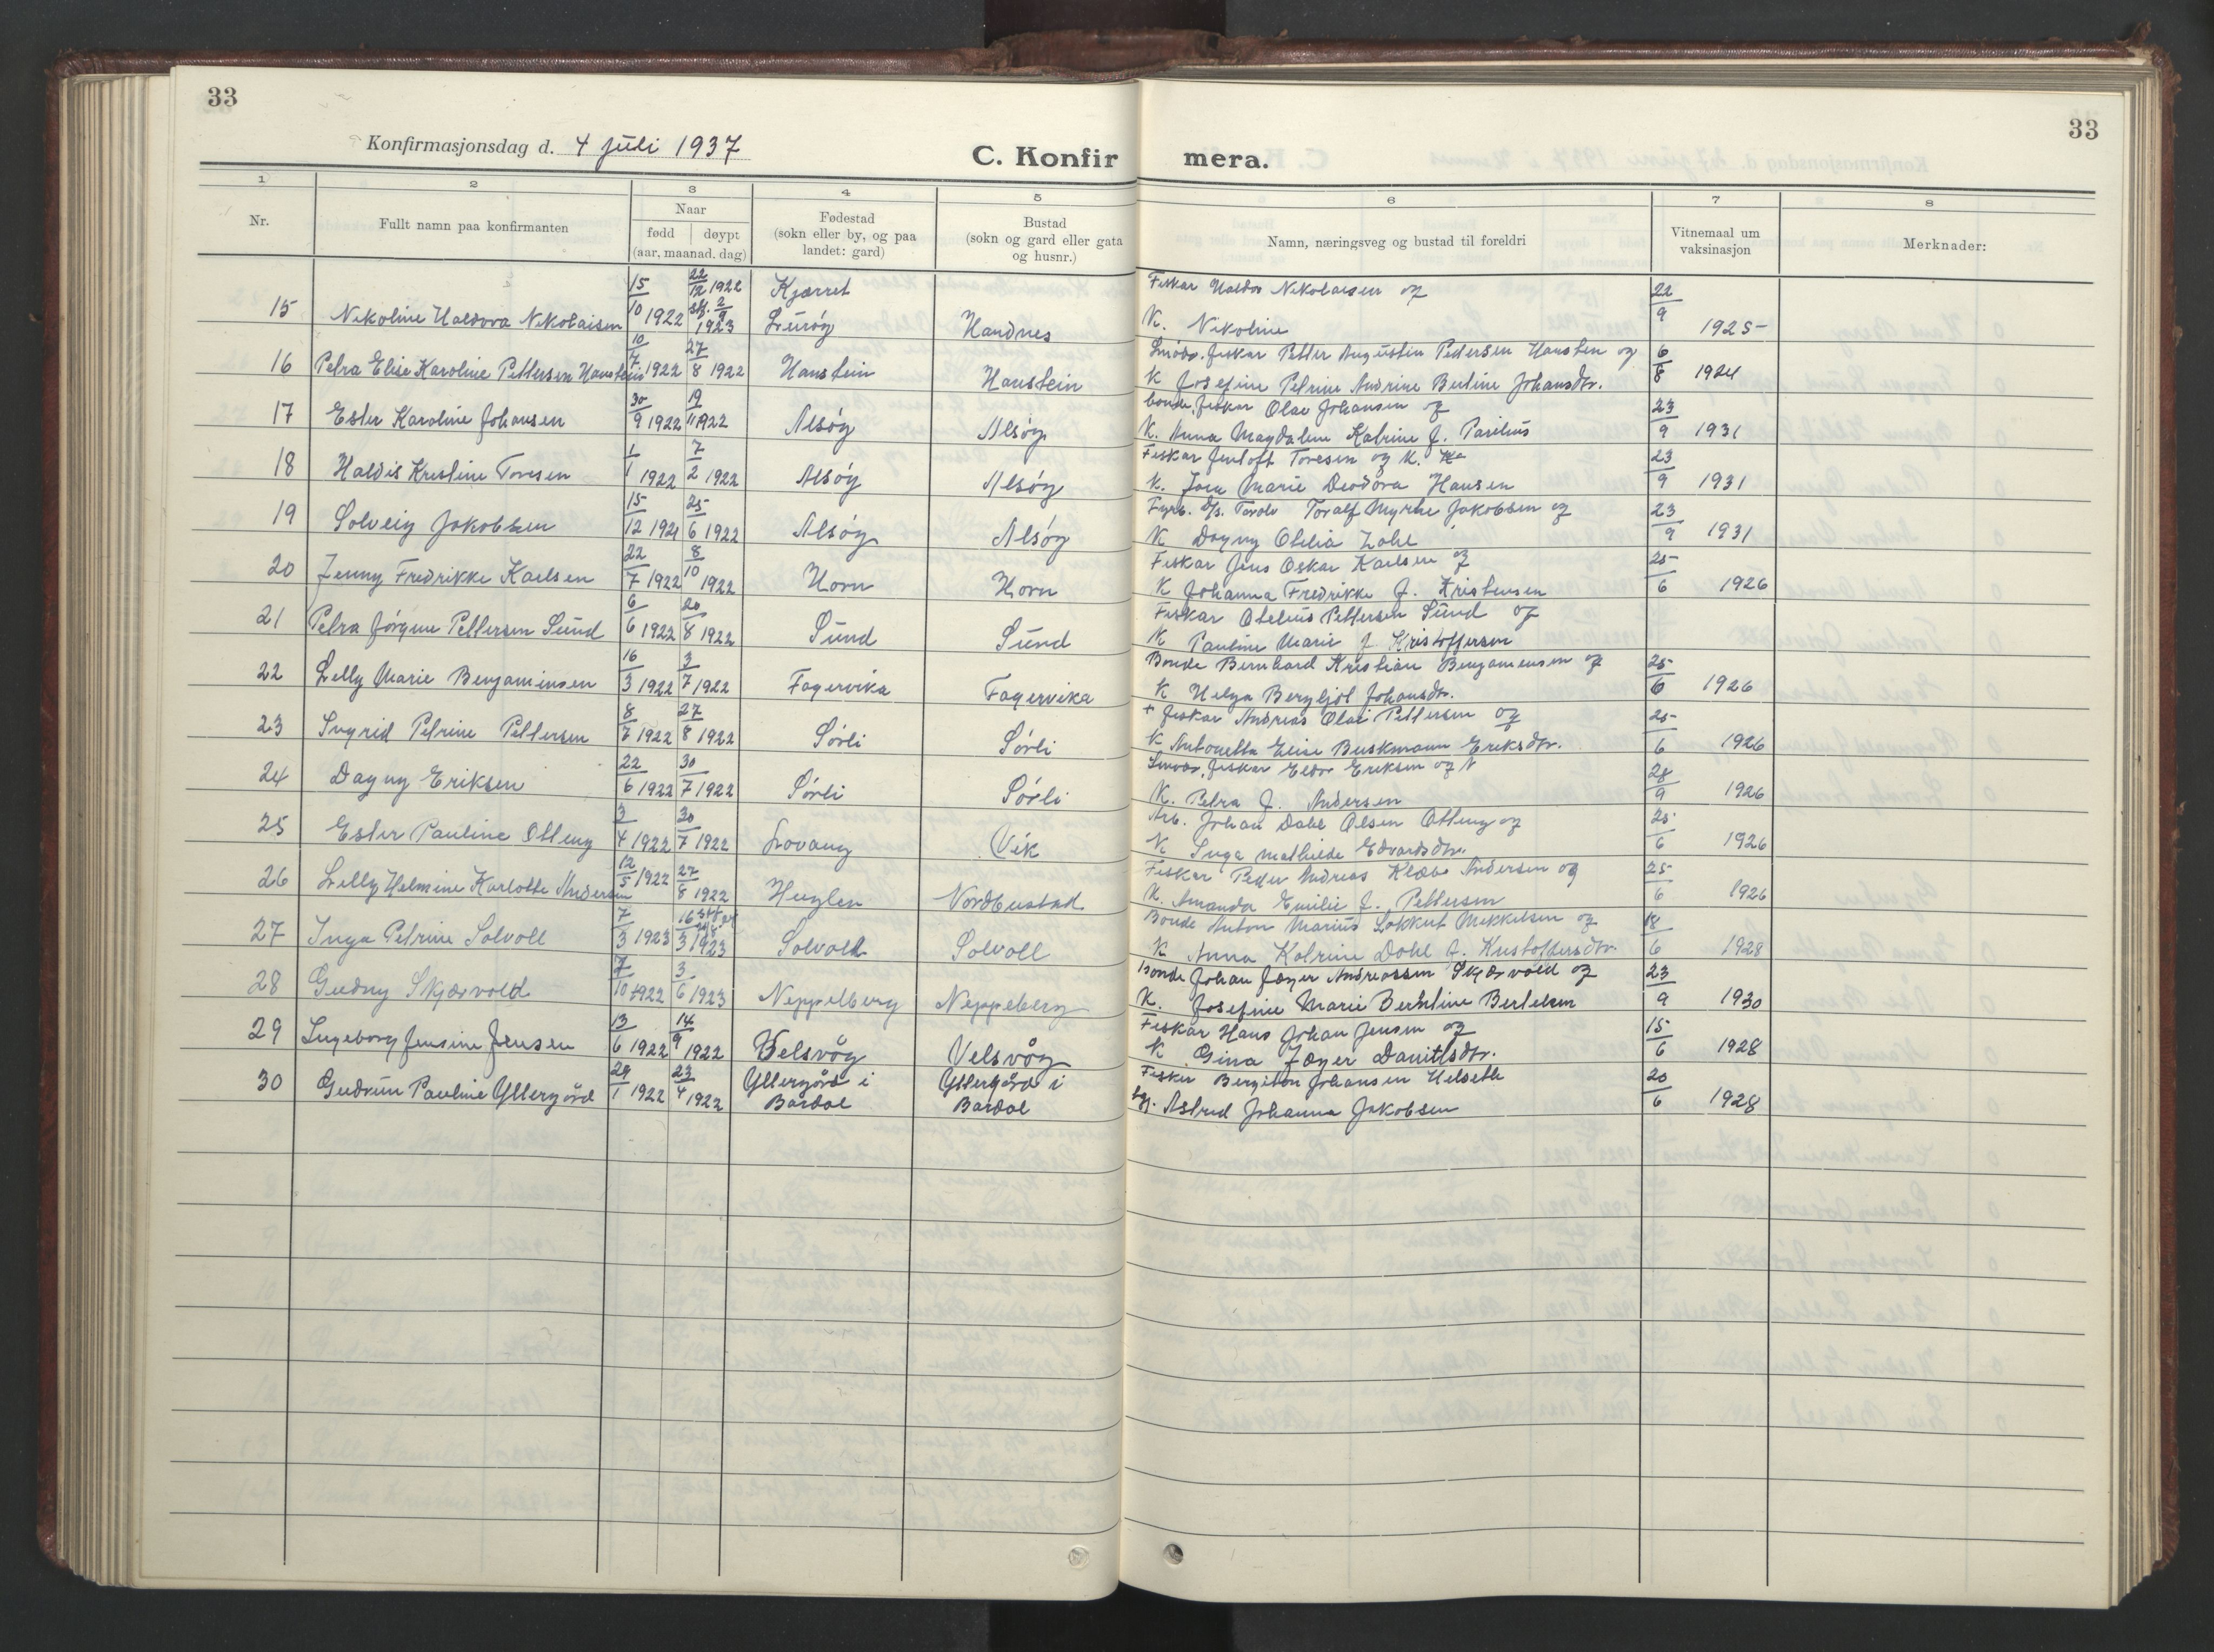 33
33
Konfirmasjonsdag d. 4 juli 1937
C. Konfir mera.
1 2 3 4 5 6 7 8
Nr.
Fullt namn paa konfirmanten
Naar
fødd døypt
(aar, maanad. dag)
Fødestad
(sokn eller by, og paa
landet: gard)
Bustad
(sokn og gard eller gata
og husnr.)
Namn, næringsveg og bustad til foreldri
Vitnemaal um
vaksinasjon
Merknader:
15 Nikoline Haldora Nikolaisen 15/10 1922 22/12 1922 st. 2/9 1923 Kjærret Lurøy Handnes Fiskar Haldor Nikolaisen og
K. Nikoline 22/9 1925
16 Petra Elise Karoline Pettersen Haustein 10/7 1922 27/8 1922 Haustein Haustein Småbr. fiskar Petter Augustin Pedersen Haustein og
K Josefine Petrine Andrine Berline Johansdtr. 6/8 1924
17 Ester Karoline Johansen 30/9 1922 19/11 1922 Alsøy Alsøy bonde, fiskar Olav Johansen og
K. Anna Magdalene Katrine f. Parelius 23/9 1931
18 Haldis Kristine Toresen 1/1 1922 7/2 1922 Alsøy Alsøy Fiskar Jenloft Toresen og K.
K. Marie Deodora Hansen 23/9 1931
19 Solveig Jakobsen 15/12 1921 25/6 1922 Alsøy Alsøy Fyrb. D/s. Torolv Toralf Myrhe Jakobsen og
K Dagny Otelia Zahl 23/9 1931
20 Jenny Fredrikke Karlsen 22/7 1922 8/10 1922 Horn Horn Fiskar Jens Oskar Karlsen og
K Johanna Fredrikke f. Kristensen 25/6 1926
21 Petra Jørgine Pettersen Sund 6/6 1922 20/8 1922 Sund Sund Fiskar Otelius Pettersen Sund og
K Pauline Marie f. Kristoffersen
22 Lelly Marie Benjaminsen 16/3 1922 3/7 1922 Fagervika Fagervika Bonde Bernhard Kristian Benjaminsen og
K Helga Bergljot Johansdtr. 25/6 1926
23 Ingrid Petrine Pettersen 8/7 1922 27/8 1922 Sørli Sørli + fiskar Andreas Olai Pettersen og
K Antonetta Elise Buskmann Eriksdtr. 25/6 1926
24 Dagny Eriksen 22/6 1922 30/7 1922 Sørli Sørli Småbr. fiskar Eldor Eriksen og
K. Petra f. Andersen 28/9 1926
25 Ester Pauline Otteng 3/4 1922 30/7 1922 Lovang Vik Arb. Johan Dahl Olsen Otteng og
K Inga Mathilde Edvardsdtr. 25/6 1926
26 Lelly Helmine Karlotte Andersen 12/5 1922 27/8 1922 Huglen Nordbustad Fiskar Peder Andreas Klæbo Andersen og
K. Amanda Emilie f. Pettersen 25/6 1926
27 Inga Petrine Solvoll 7/3 1923 16/3 1923 Solvoll Solvoll Bonde Anton Marius Løkkut Mikkelsen og
K Anna Katrine Dahl f. Kristoffersdtr. 18/6 1928
28 Gudny Skjærvold 7/10 1922 3/6 1923 Neppelberg Neppeberg Bonde Johan Jæger Andreassen Skjærvold og
K. Josefine Marie Berntine Bertelsen 23/9 1930
29 Ingeborg Jensine Jensen 13/6 1922 14/9 1922 Velsvåg Velsvåg Fiskar Hans Johan Jensen og
K Gina Jæger Danielsdtr. 15/6 1928
30 Gudrun Pauline Yttergård 29/1 1922 23/4 1922 Yttergård i Bardal Yttergård i Bardal Fisker Bergiton Johansen Helseth
Ug. Astrid Johanna Jakobsen 20/6 1928